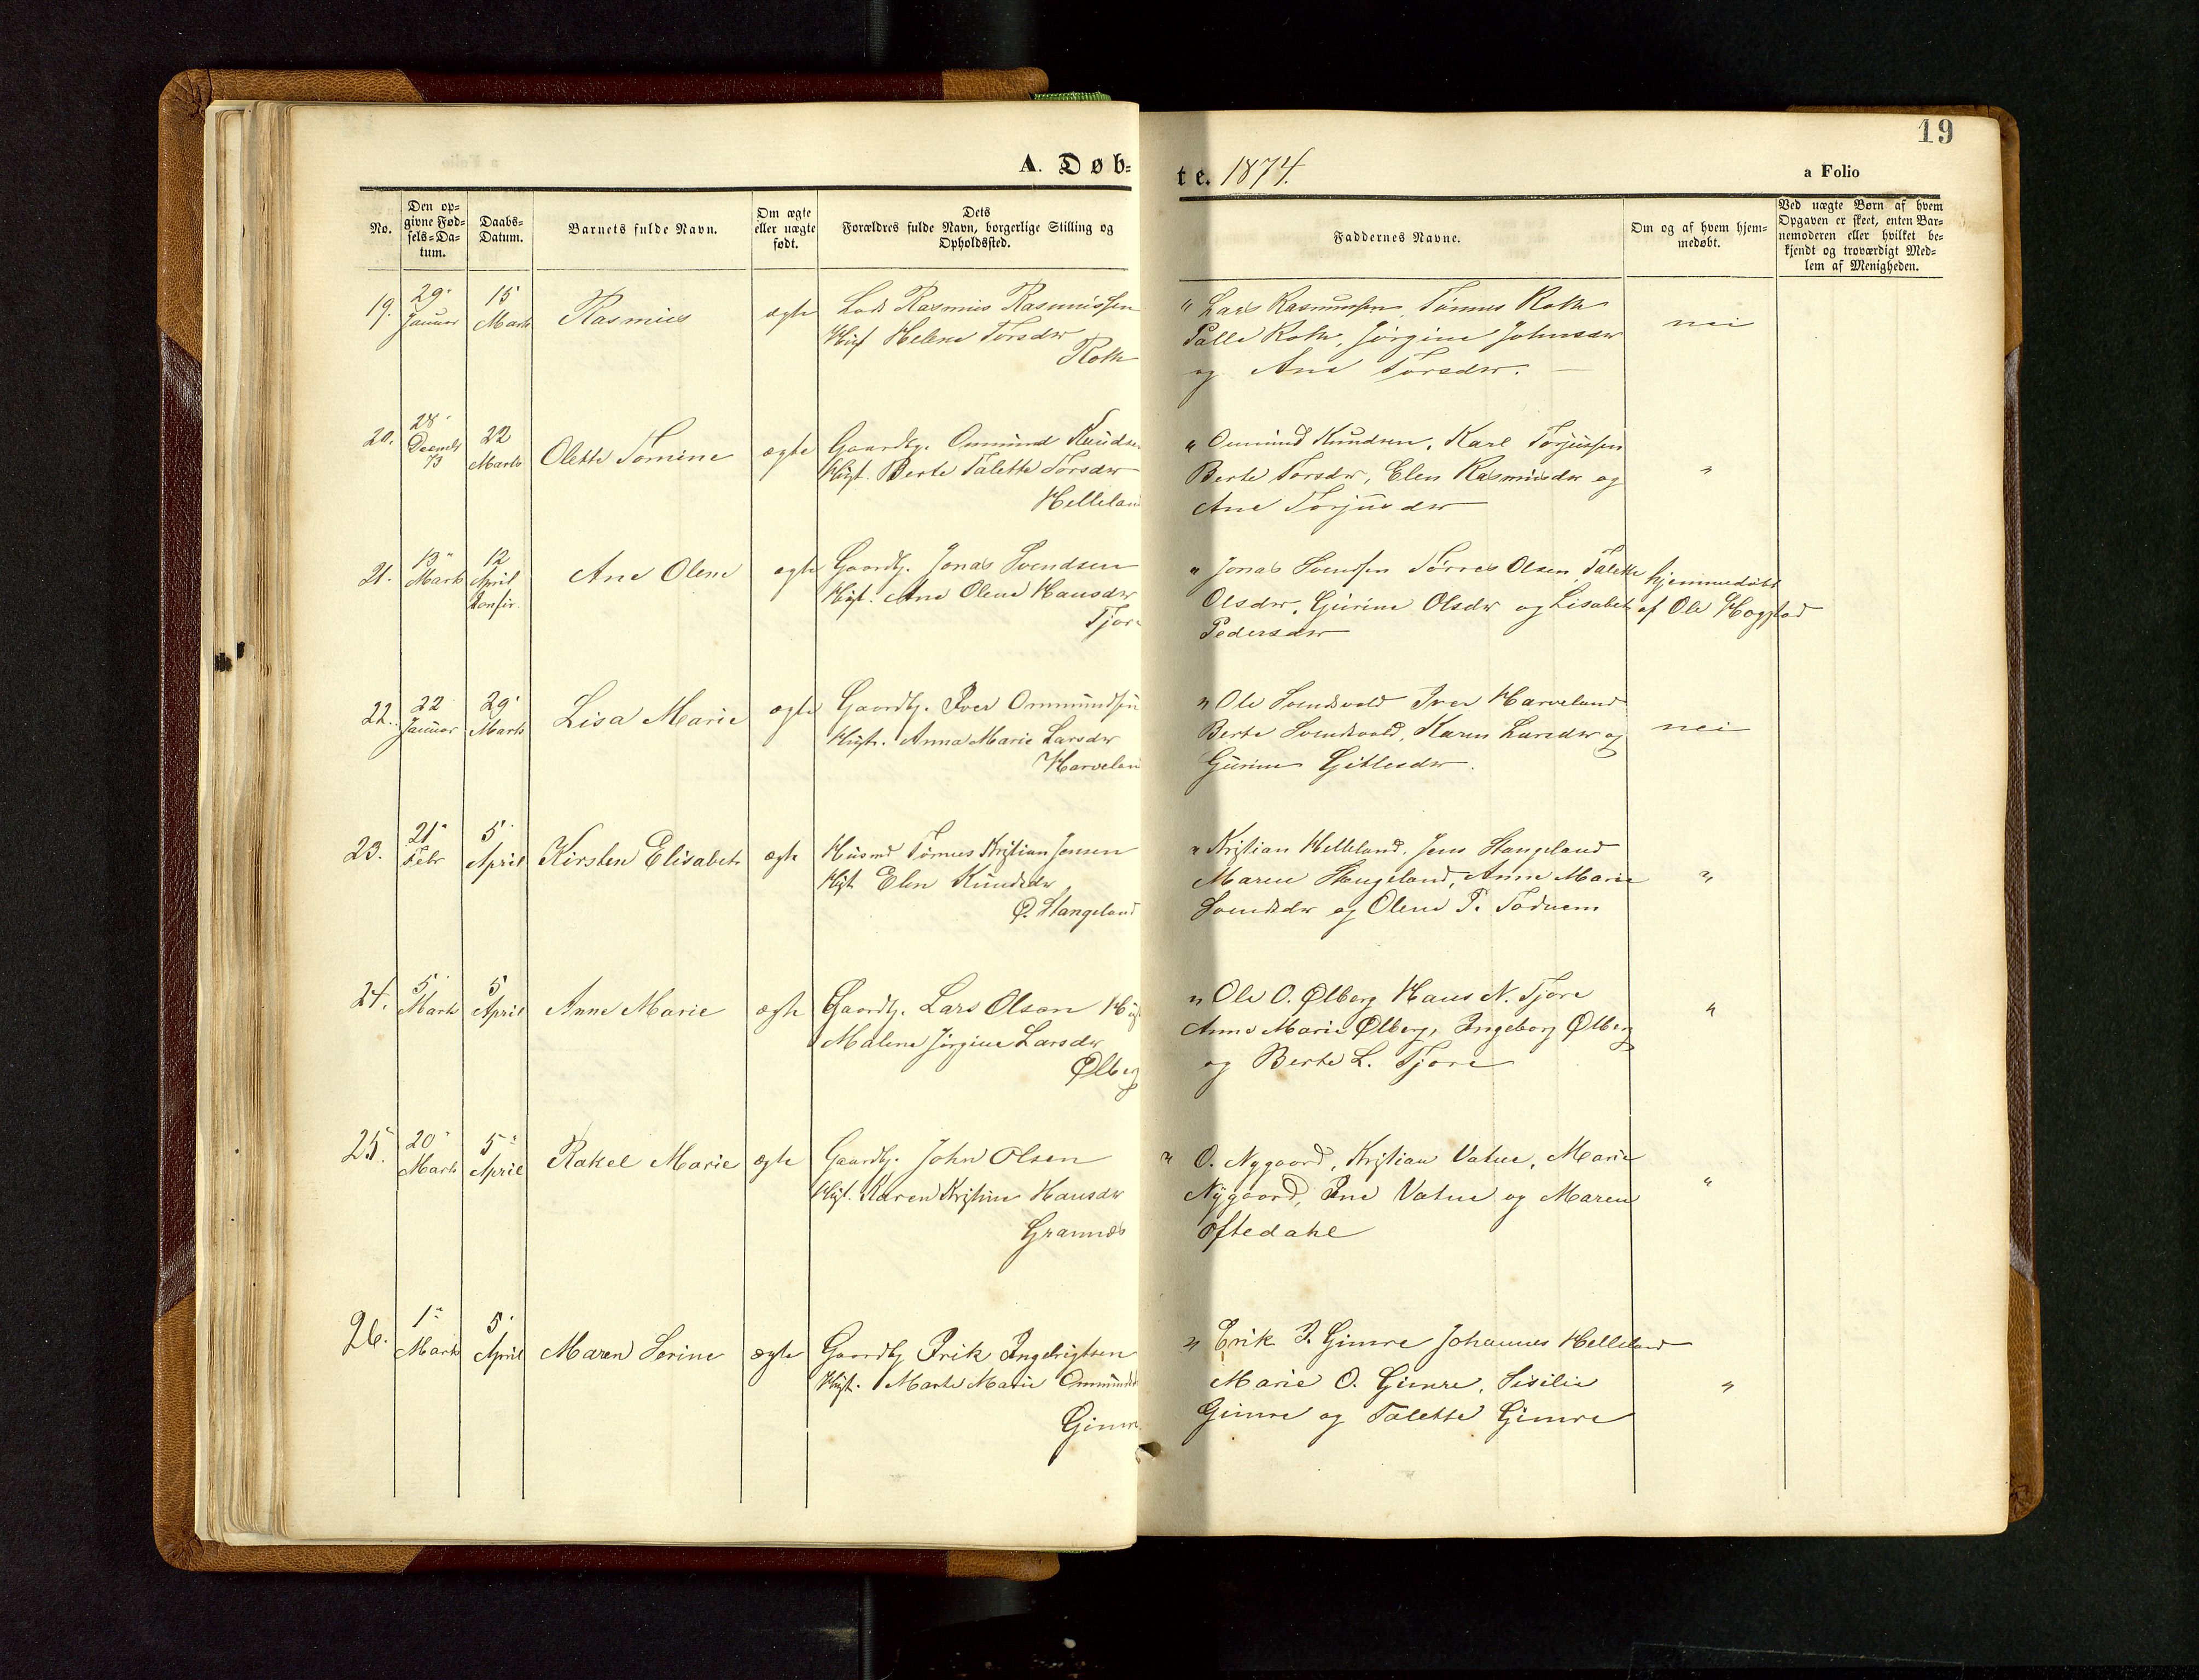 19
A. Døb-
te. 1874.
a Folio
No.
Den op-
givne Fød-
sels-Da-
tum.
Daabs-
Datum.
Barnets fulde Navn.
Om ægte
eller uægte
født.
Dets
Forældres fulde Navn, borgerlige Stilling og
Opholdssted.
Faddernes Navne.
Om og af hvem hjem-
medøbt.
Ved uægte Børn af hvem
Opgaven er skeet, enten Bar-
nemoderen eller hvilket be-
kjendt og troværdigt Med-
lem af Menigheden.
19.
29
Januar
15
Marts
Rasmus
ægte
Rasmus Rasmussen
Helene Torsdtr
Roth
" Lars Rasmussen, Tønnes Roth
Palle Roth, Jørgine Johnsdtr
og Ane Torsdtr.
nei
20.
28
Decemb
73
22
Marts
Olette Tomine
ægte
Gaardbr. Ommund Knudsen
Hust. Berte Talette Torsdtr
Helleland
" Ommund Knudsen, Karl Torjussen
Berte Torsdtr, Elen Rasmusdtr og
Ane Torjusdtr
"
21.
13
Marts
12
April
Konfir.
Ane Olene
ægte
Gaardbr. Jonas Svendsen
Hust. Ane Olene Hansdtr
Tjore
" Jonas Svendsen Tørres Olsen, Talette
Olsdtr, Gurine Olsdtr og Lisabet
Pedersdtr
hjemmedøbt
af Ole Hogstad
22.
22
Januar
29
Marts
Lisa Marie
ægte
Gaardbr. Iver Ommundsen
Hustr. Anna Marie Larsdtr
Harveland
" Ole Svendsvold Iver Harveland
Berte Svendsvold, Karen Larsdtr og
Gurine Gitlesdtr.
nei
23.
21
Febr
5
April
Kirsten Elisabet
ægte
Husmd Tønnes Kristian Jensen
Hust. Elen Knudsdtr
Ø. Stangeland
" Kristian Helleland, Jens Stangeland
Maren Stangeland, Anne Marie
Svendsdtr og Olene P. Todnem
"
24.
5
Marts
5
April
Anne Marie
ægte
Gaardbr. Lars Olsen Hust
Malene Jørgine Larsdtr
Ølberg
" Ole O. Ølberg Hans N. Tjore
Anne Marie Ølberg, Ingeborg Ølberg
og Berte L. Tjore
"
25.
20
Marts
5
April
Rakel Marie
ægte
Gaardbr. John Olsen
Hust. Karen Kristine Hansdtr
Grannes
" O. Nygaard, Kristian Vatne, Marie
Nygaard, Ine Vatne og Maren
Oftedahl
"
26.
1
Marts
5
April
Maren Serine
ægte
Gaardbr Erik Ingebrigtsen
Hust. Marte Marie Ommundsd
Gimre
" Erik I. Gimre Johannes Helleland
Marie O. Gimre, Sisilie
Gimre og Talette Gimre
"